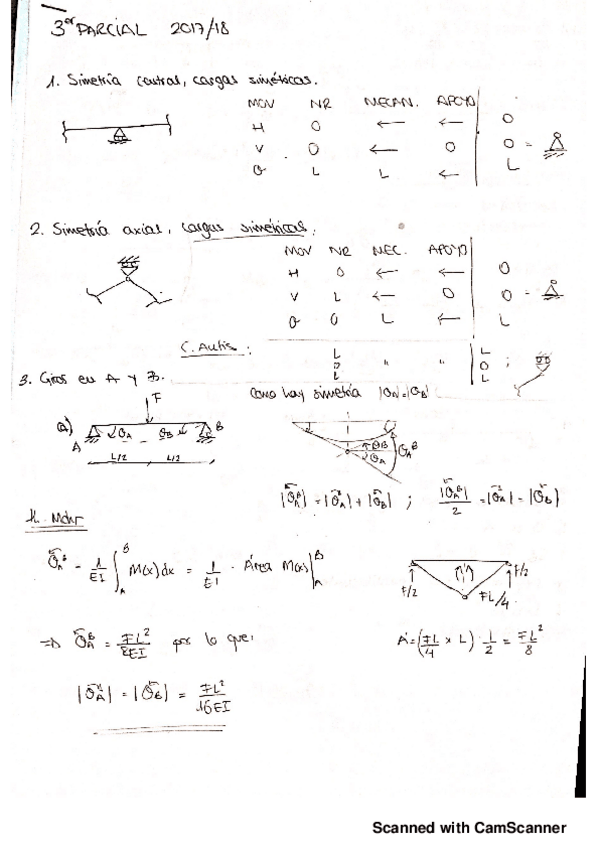 3er PARCIAL 2017/18
1. Simetría central, cargas simétricas.
MOV NR MECAN. APOYO
H 0 ← ← 0
V 0 ← 0 0 =
θ L L ← L
2. Simetría axial, cargas simétricas.
MOV NR MEC. APOYO
H 0 ← ← 0
V L ← 0 0 =
θ 0 L ← L
C. Antis:
L L
0 " " 0 ;
L L
3. Giros en A y B.
Como hay simetría |θA|=|θB|
a) F
A θA - θB B
L/2 L/2
θB
θA
θAB
|θAB| = |θA| + |θB| ; |θAB|/2 = |θA| = |θB|
1er. Mohr
θAB = 1/EI ∫AB M(x)dx = 1/EI · Área M(x)|AB
F/2 F/2
FL/4
=> θAB = FL²/8EI por lo que:
A = (FL/4 × L) · 1/2 = FL²/8
|θA| = |θB| = FL²/16EI
Scanned with CamScanner